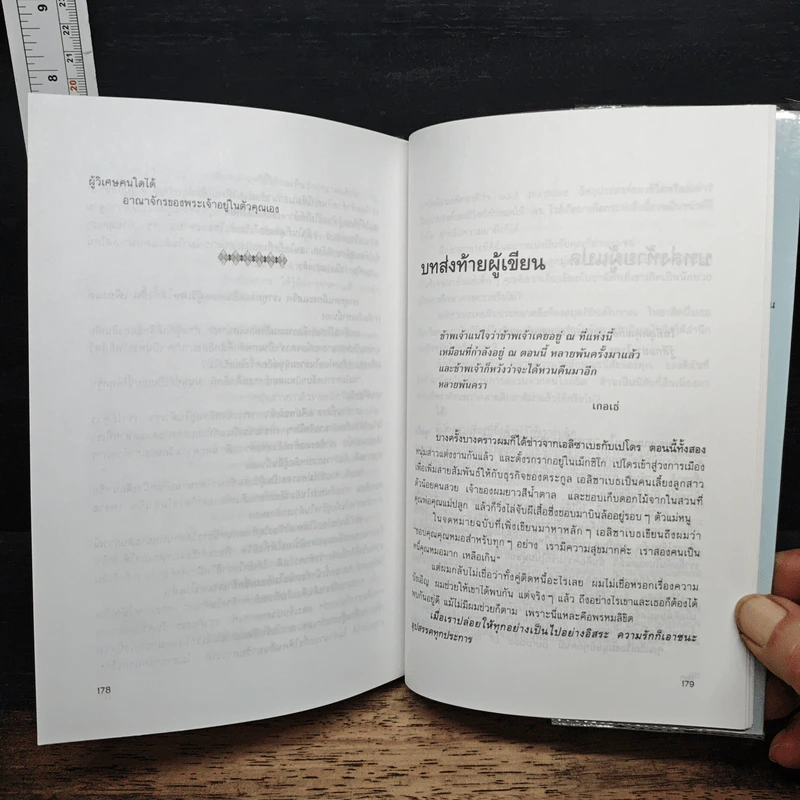 9
8
23
22
21
20
ผู้วิเศษคนใดได้
อาณาจักรของพระเจ้าอยู่ในตัวคุณเอง
178
บทส่งท้ายผู้เขียน
ข้าพเจ้าแน่ใจว่าข้าพเจ้าเคยอยู่ ณ ที่แห่งนี้
เหมือนที่กำลังอยู่ ณ ตอนนี้ หลายพันครั้งมาแล้ว
และข้าพเจ้าก็หวังว่าจะได้หวนคืนมาอีก
หลายพันครา
เกอเธ่
บางครั้งบางคราวผมก็ได้ข่าวจากเอลิซาเบธกับเปโดร ตอนนี้ทั้งสอง
หนุ่มสาวแต่งงานกันแล้ว และตั้งรกรากอยู่ในเม็กซิโก เปโดรเข้าสู่วงการเมือง
เพื่อเพิ่มสายสัมพันธ์ให้กับธุรกิจของตระกูล เอลิซาเบธเป็นคนเลี้ยงลูกสาว
ตัวน้อยคนสวย เจ้าของผมยาวสีน้ำตาล และชอบเก็บดอกไม้จากในสวนที่
คุณพ่อคุณแม่ปลูก แล้วก็วิ่งไล่จับผีเสื้อซึ่งชอบมาบินล้ออยู่รอบๆ ตัวแม่หนู
ในจดหมายฉบับที่เพิ่งเขียนมาหาหลักๆ เอลิซาเบธเขียนถึงผมว่า
"ขอบคุณคุณหมอสำหรับทุกๆ อย่าง เรามีความสุขมากค่ะ เราสองคนเป็น
หนี้คุณหมอมาก เหลือเกิน"
แต่ผมกลับไม่เชื่อว่าทั้งคู่ติดหนี้อะไรเลย ผมไม่เชื่อหรอกเรื่องความ
บังเอิญ ผมช่วยให้เขาได้พบกัน แต่จริงๆ แล้ว ถึงอย่างไรเขาและเธอก็ต้องได้
พบกันอยู่ดี แม้ไม่มีผมช่วยก็ตาม เพราะนี่แหละคือพรหมลิขิต
เมื่อเราปล่อยให้ทุกอย่างเป็นไปอย่างอิสระ ความรักก็เอาชนะ
อุปสรรคทุกประการ
179